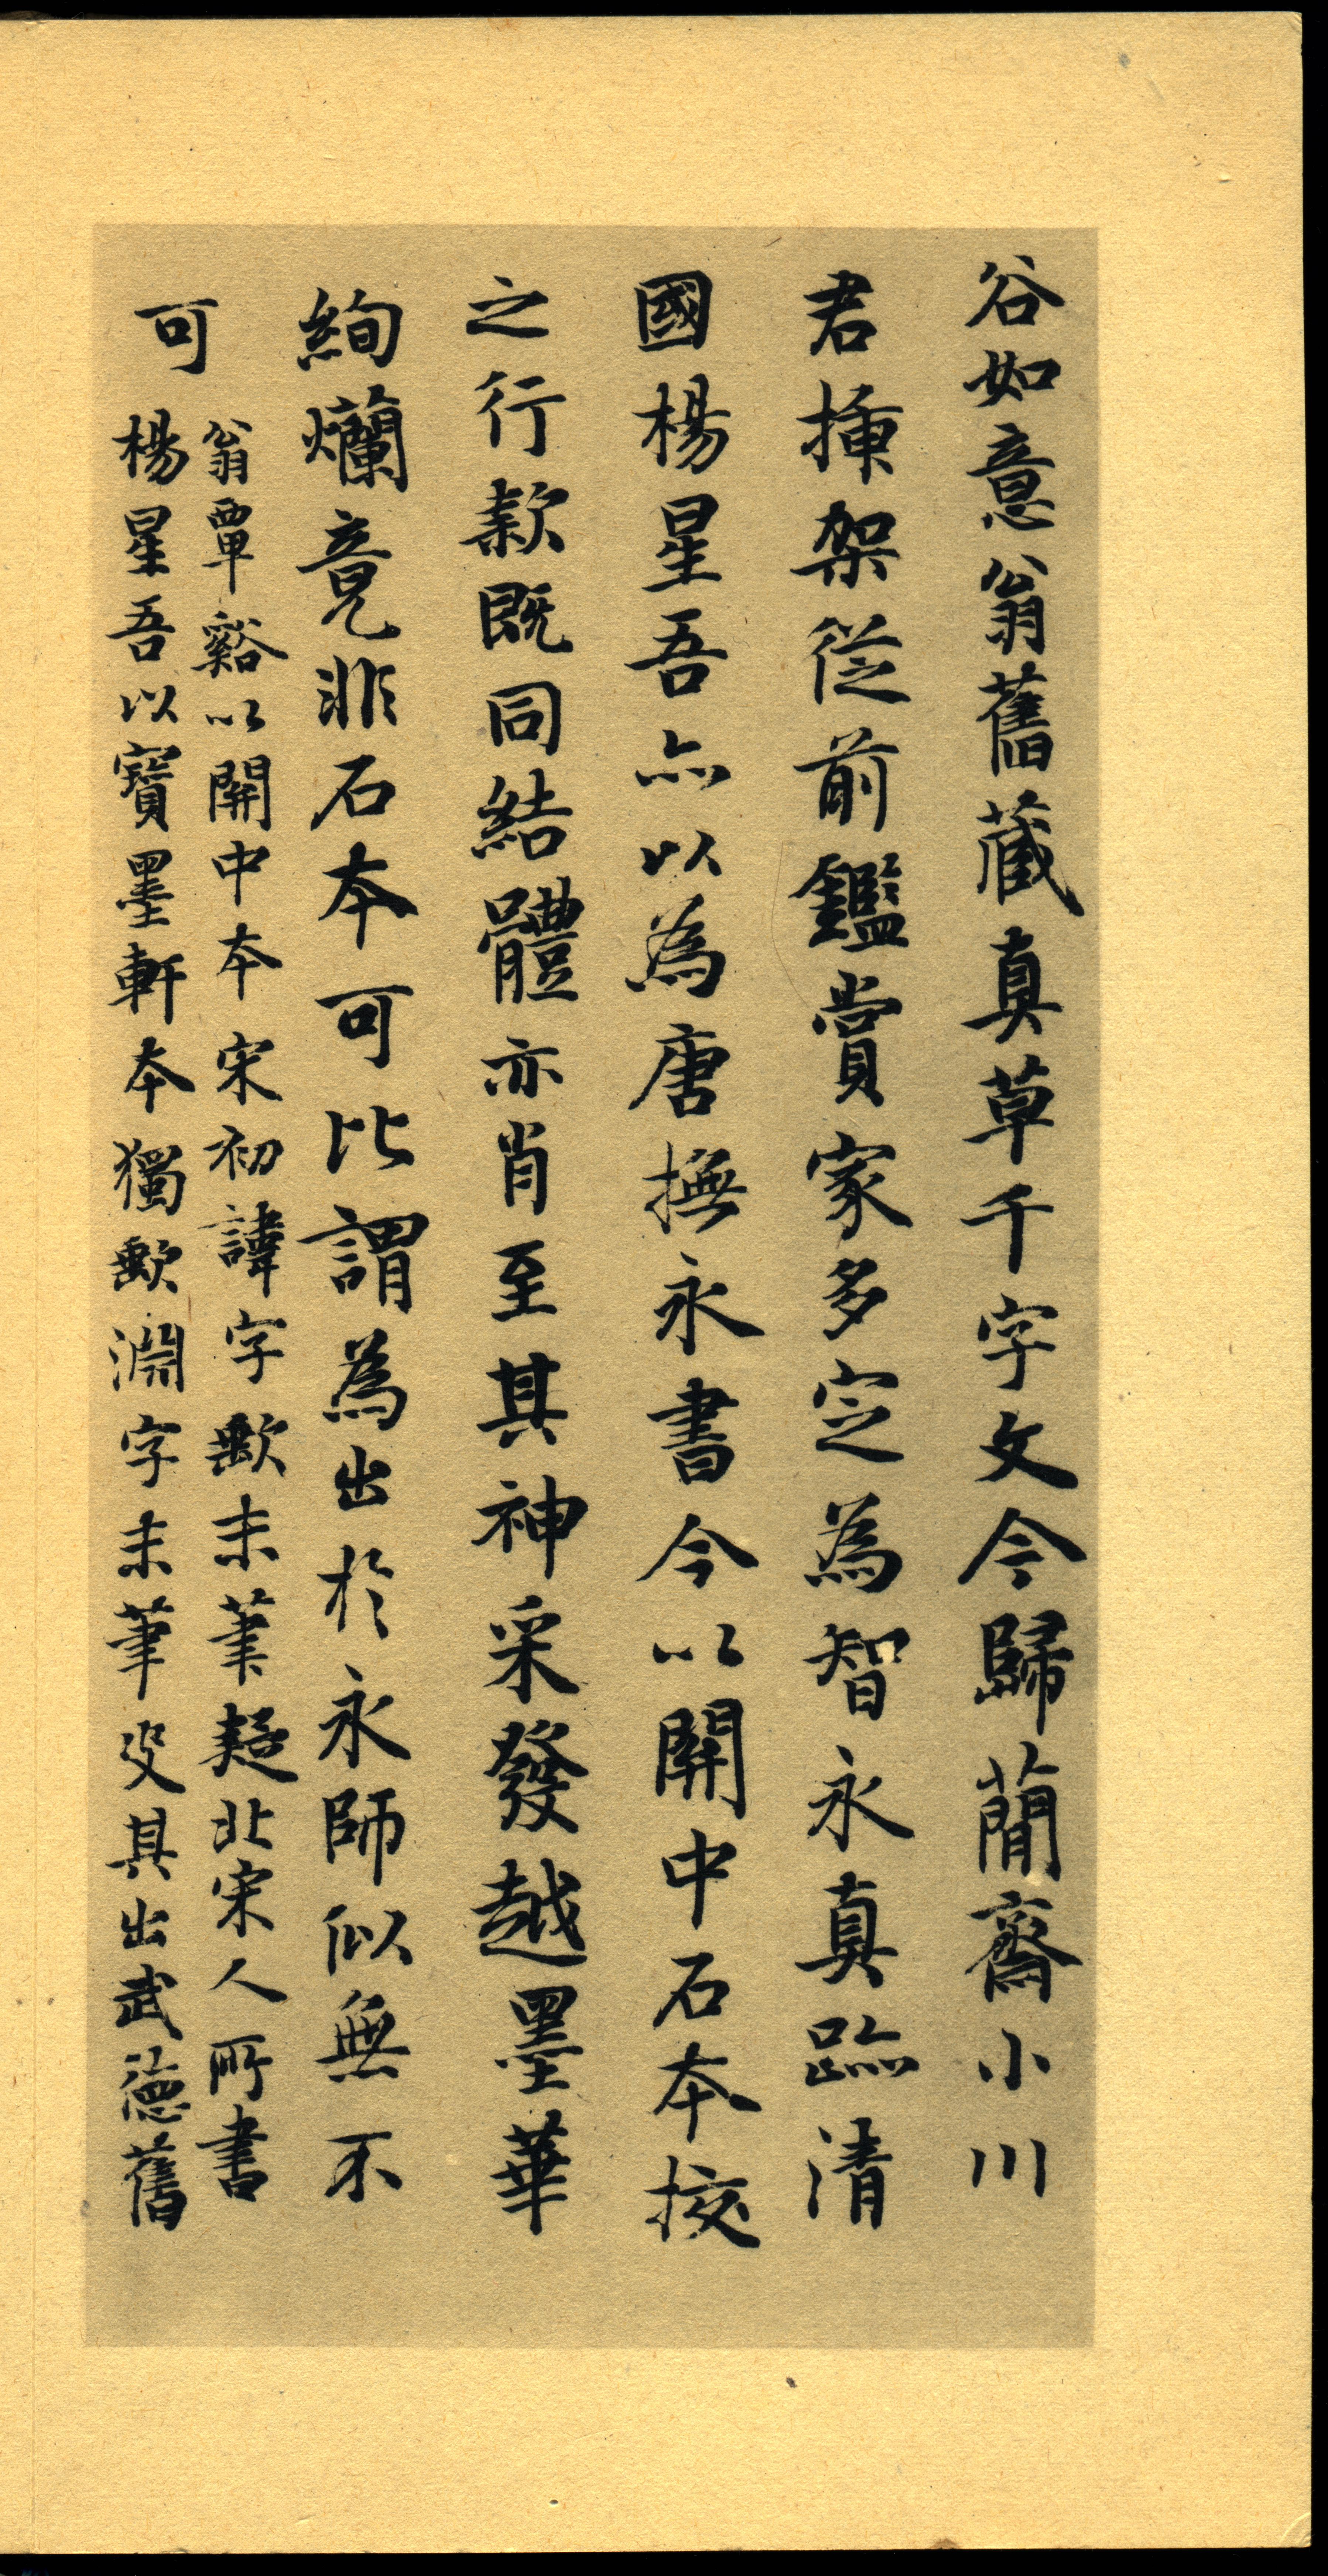 谷如意翁舊藏真草千字文今歸蕳齋小川
君揷架從前鑑賞家多定為智永真跡清
國楊星吾亦以為唐撫永書今以關中石本挍
之行款既同結體亦肖至其神采發越墨華
絢爛竟非石本可比謂為出於永師似無不
可
翁覃谿以關中本宋初諱字歟末筆疑北宋人所書
楊星吾以寶墨軒本獨歟淵字末筆叟其出武德舊